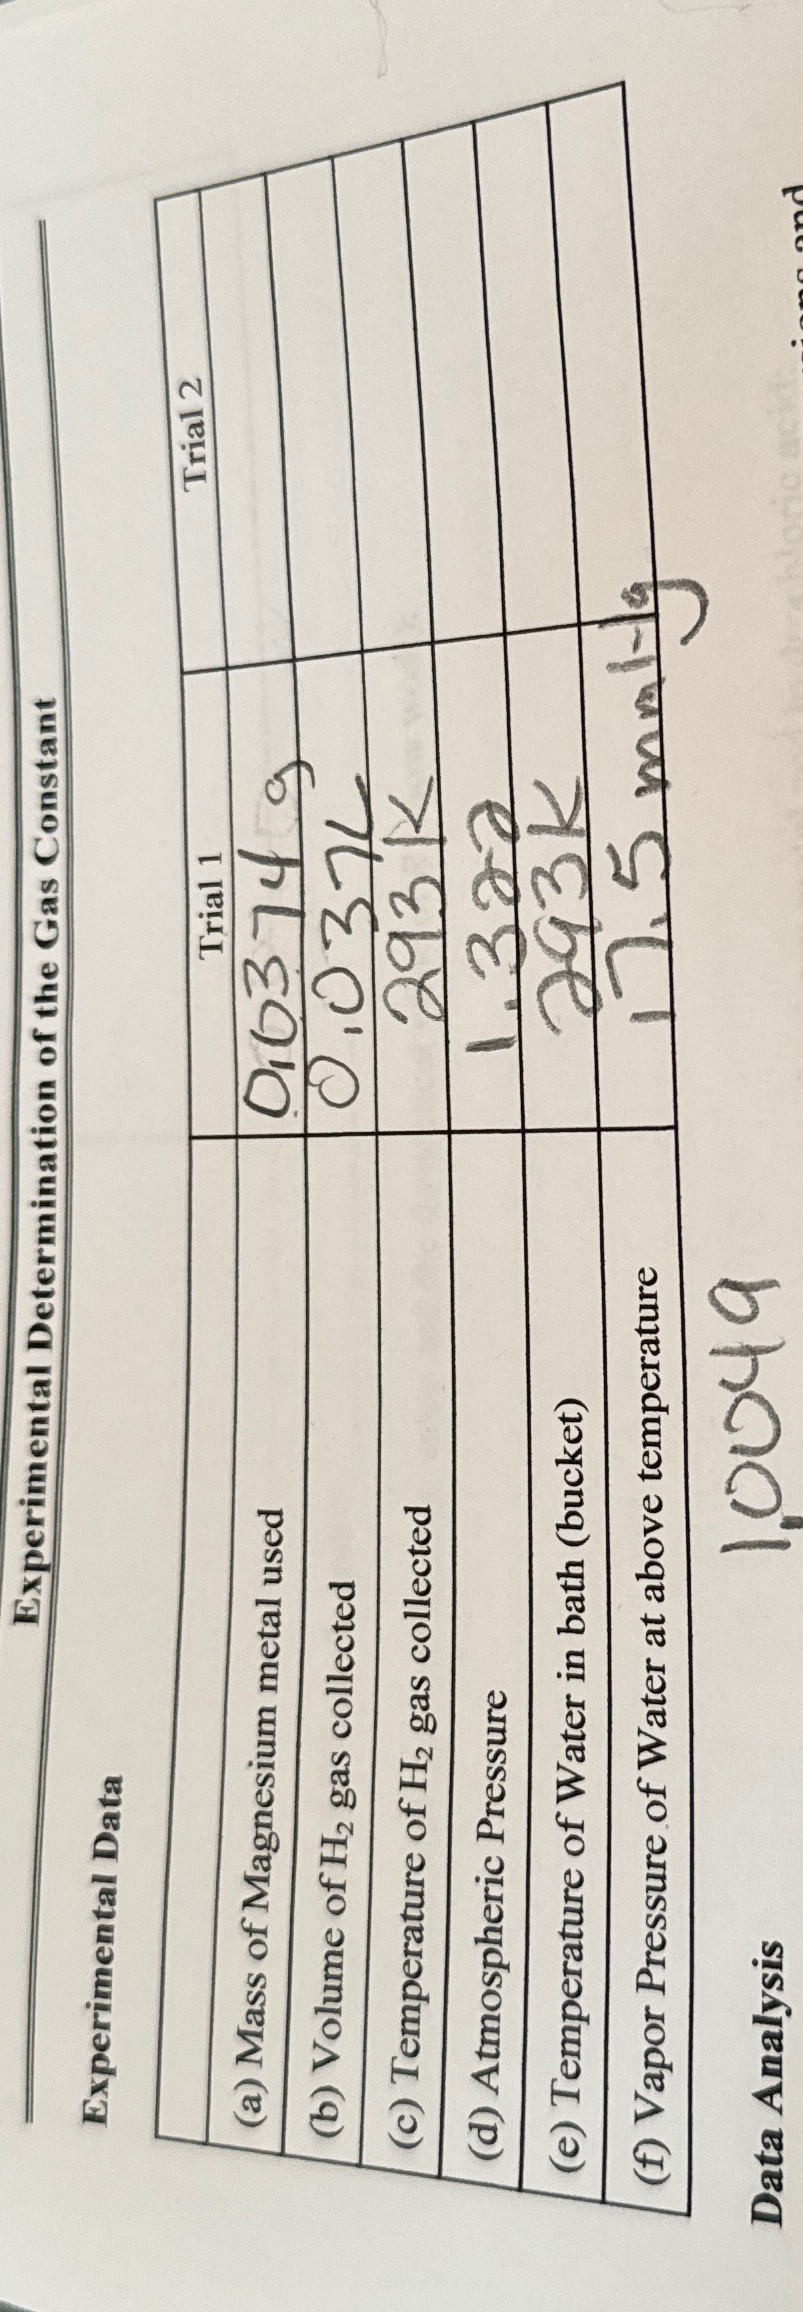 Experimental Determination of the Gas Constant
Experimental Data
Trial 1 Trial 2
(a) Mass of Magnesium metal used 0.0374 g
(b) Volume of H₂ gas collected 0.037L
(c) Temperature of H₂ gas collected 293 K
(d) Atmospheric Pressure 1.322
(e) Temperature of Water in bath (bucket) 293K
(f) Vapor Pressure of Water at above temperature 17.5 mmHg
Data Analysis